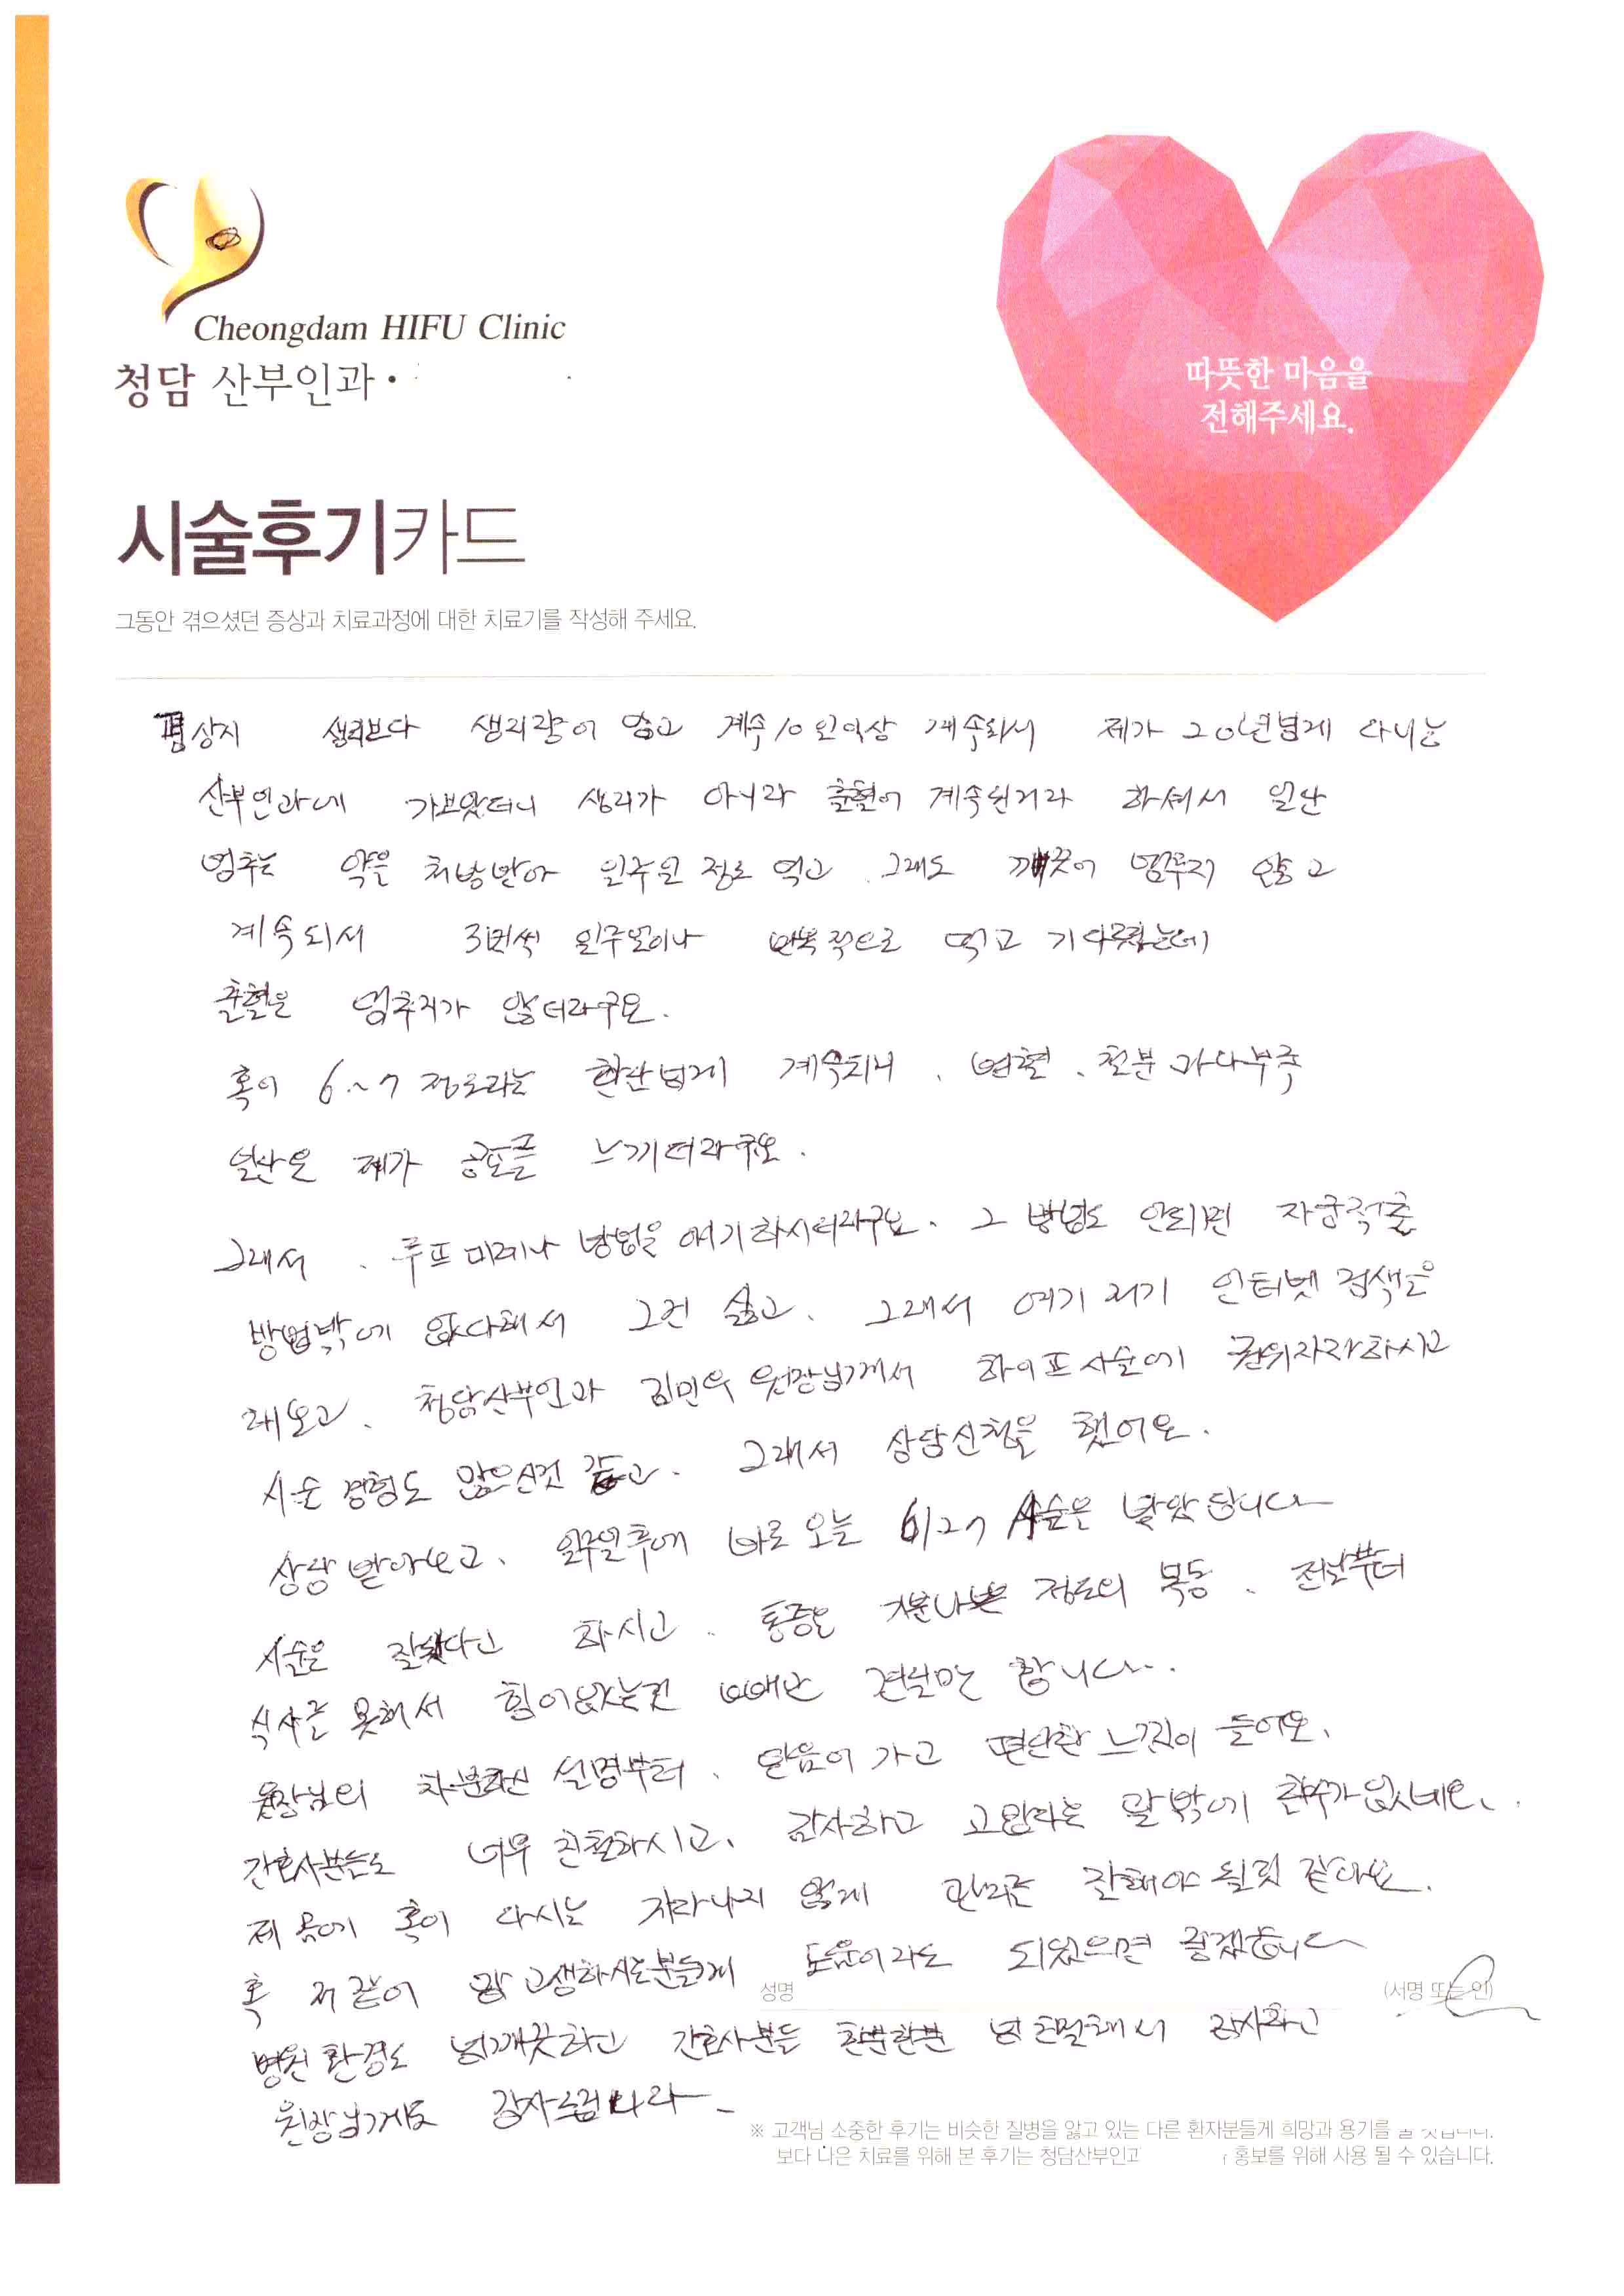 Cheongdam HIFU Clinic
청담 산부인과
따뜻한 마음을
전해주세요.
시술후기카드
그동안 겪으셨던 증상과 치료과정에 대한 치료기를 작성해 주세요.
평상시 생리보다 생리량이 많고 계속 10일이상 계속되서 제가 20년넘게 다니는
산부인과에 가보았더니 생리가 아니라 출혈이 계속된거라 하셔서 일단
멈추는 약을 처방받아 일주일 정도 먹고 그래도 깨끗이 멈추지 않고
계속되서 3번씩 일주일이나 반복적으로 먹고 기다렸는데
출혈은 멈추지가 않더라구요.
혹이 6~7 정도라는 한달넘게 계속되니, 빈혈, 철분 과다부족
일단은 제가 공포를 느끼더라구요.
그래서, 루프 미레나 방법을 얘기하시더라구요. 그 방법도 안되면 자궁적출
방법밖에 없다해서 그건 싫고, 그래서 여기 저기 인터넷 검색을
해보고, 청담산부인과 김민우 원장님께서 하이프시술에 권위자라하시고
시술 경험도 많으신것 같고. 그래서 상담신청을 했어요.
상담 받아보고, 일주일후에 바로 오늘 6/27 시술을 받았답니다
시술은 잘됐다고 하시고. 통증은 기분나쁜 정도의 복통, 전날부터
식사를 못해서 힘이없는것 빼곤 견딜만 합니다.
원장님의 차분하신 설명부터, 믿음이 가고 편안한 느낌이 들어요.
간호사분들도 너무 친절하시고, 감사하고 고맙다는 말밖에 할수가 없네요.
제 몸에 혹이 다시는 자라나지 않게 관리를 잘해야 될것 같아요.
혹 저같이 맘고생하시는분들께 도움이라도 되었으면 좋겠습니다
성명 (서명 또는 인)
병원 환경도 넘 깨끗하고 간호사분들 한분한분 넘 친절해서 감사하고
원장님께도 감사드립니다
※ 고객님 소중한 후기는 비슷한 질병을 앓고 있는 다른 환자분들게 희망과 용기를
보다 나은 치료를 위해 본 후기는 청담산부인과 홍보를 위해 사용 될 수 있습니다.